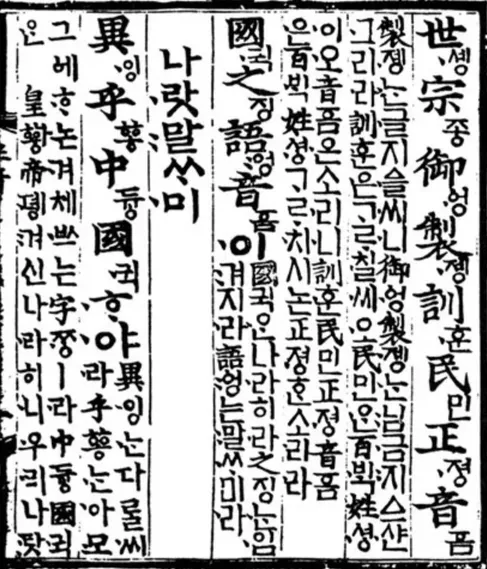 世솅宗종御ᅌᅥᆼ製졩訓훈民민正져ᇰ音ᅙᅳᆷ
製졩ᄂᆞᆫ글지ᅀᅳᆯ씨니御ᅌᅥᆼ製졩ᄂᆞᆫ님금지ᅀᅳ샨
그리라訓훈ᄋᆞᆫᄀᆞᄅᆞ칠씨오民민ᄋᆞᆫ百ᄇᆡᆨ姓셔ᇰ
이오音ᅙᅳᆷ은소리니訓훈民민正져ᇰ音ᅙᅳᆷ
은百ᄇᆡᆨ姓셔ᇰᄀᆞᄅᆞ치시논正져ᇰᄒᆞᆫ소리라
國귁之징語ᅌᅥᆼ音ᅙᅳᆷ이
國귁ᄋᆞᆫ나라히라之징ᄂᆞᆫ입
겨지라語ᅌᅥᆼ는말ᄊᆞ미라
나랏말ᄊᆞ미
異잉乎ᅘᅩᆼ中듀ᇰ國귁ᄒᆞ야
異잉ᄂᆞᆫ다ᄅᆞᆯ씨
라乎ᅘᅩᆼᄂᆞᆫ아모
그ᅌᅦᄒᆞ논겨체ᄡᅳ는字ᄍᆞᆼㅣ라中듀ᇰ國귁
ᄋᆞᆫ皇ᅘᅪᇰ帝뎽겨신나라히니우리나랏